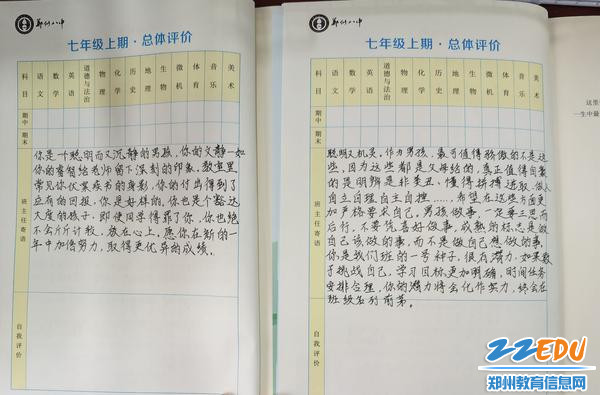 郑州八中
七年级上期·总体评价
科目
语文
数学
英语
道德与法治
物理
化学
历史
地理
生物
微机
体育
音乐
美术
期中
期末
班主任寄语
你是个聪明而又沉静的男孩,你的文静一如
你的睿智给老师留下深刻的印象。教室里
常见你伏案疾书的身影,你的付出得到了
应有的回报。你是好样的,你也是个豁达
大度的孩子,即使同学得罪了你,你也绝
不会斤斤计较,放在心上。愿你在新的一
年中加倍努力,取得更优异的成绩。
自我评价
郑州八中
七年级上期·总体评价
科目
语文
数学
英语
道德与法治
物理
化学
历史
地理
生物
微机
体育
音乐
美术
期中
期末
班主任寄语
聪明又机灵。作为男孩,最可值得骄傲的不是这
些,因为这些都是父母给的,真正值得自豪
的是明辨是非美丑,懂得拼搏进取,做人
自立自理自主自控……,希望在这些方面更
加严格要求自己,男孩做事,一定要三思而
后行,不要凭喜好做事,成熟的标志是做
自己该做的事,而不是做自己想做的事,
你是我们班的一号种子,很有潜力,如果敢
于挑战自己,学习目标更加明确,时间任务
安排合理,你的潜力将会化作实力,终会在
班级名列前茅。
自我评价
这里
一生中最
22EDU
郑州教育信息网